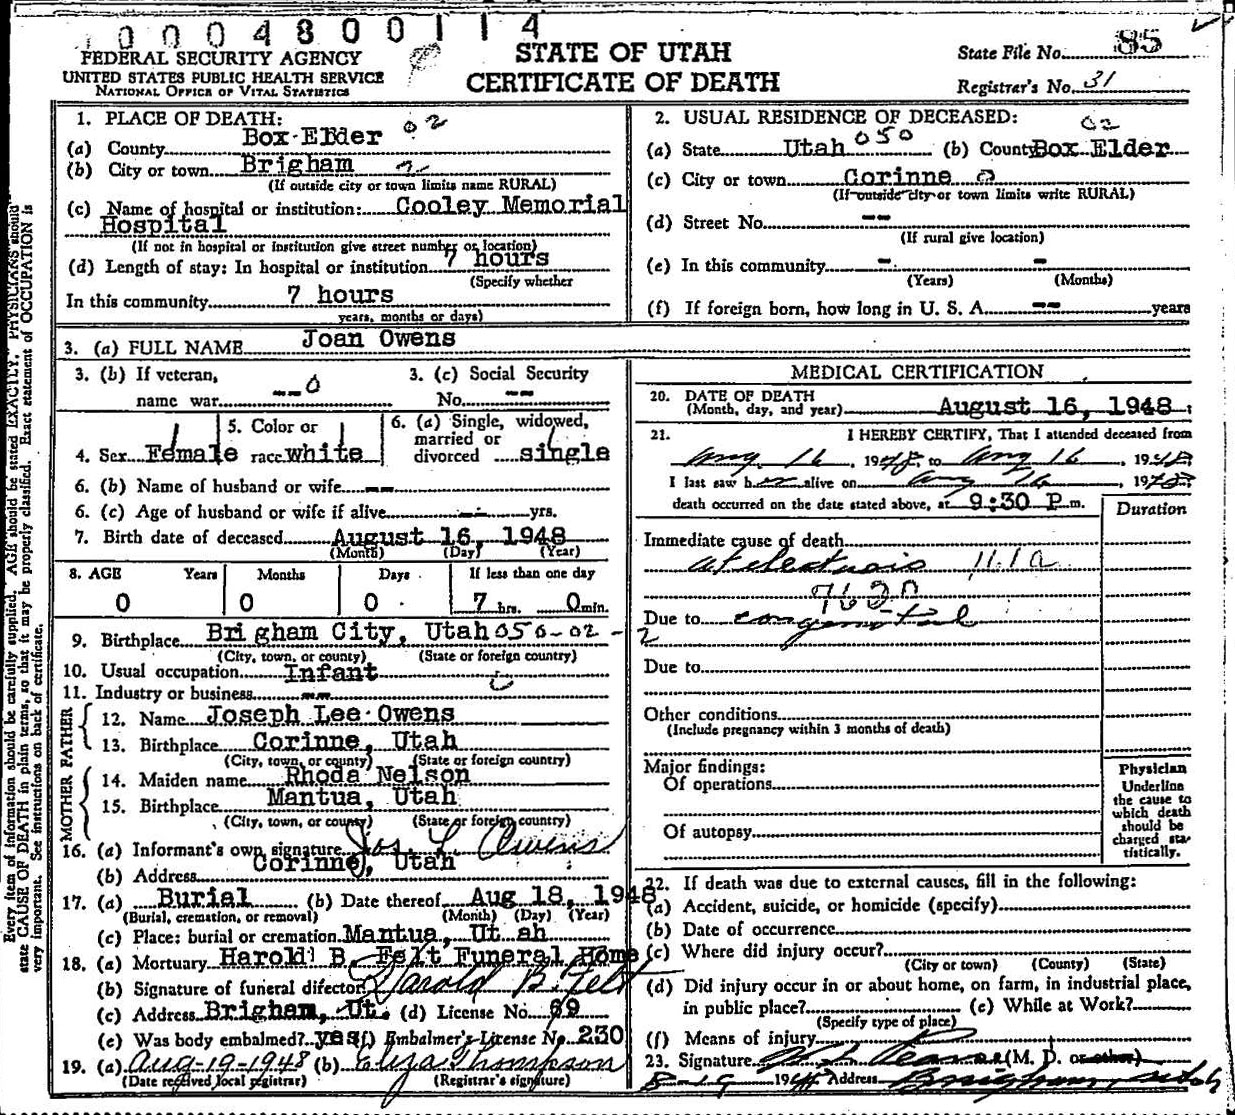 0004800114
FEDERAL SECURITY AGENCY
UNITED STATES PUBLIC HEALTH SERVICE
NATIONAL OFFICE OF VITAL STATISTICS
STATE OF UTAH
CERTIFICATE OF DEATH
State File No. 85
Registrar's No. 31
Every item of information should be carefully supplied. AGE should be stated EXACTLY. PHYSICIANS should
state CAUSE OF DEATH in plain terms, so that it may be properly classified. Exact statement of OCCUPATION is
very important. See instructions on back of certificate.
1. PLACE OF DEATH: 02
(a) County Box Elder
(b) City or town Brigham 2
(If outside city or town limits name RURAL)
(c) Name of hospital or institution: Cooley Memorial
Hospital
(If not in hospital or institution give street number or location)
(d) Length of stay: In hospital or institution 7 hours
(Specify whether
In this community 7 hours
years, months or days)
2. USUAL RESIDENCE OF DECEASED: 02
(a) State Utah 050 (b) County Box Elder
(c) City or town Corinne 0
(If outside city or town limits write RURAL)
(d) Street No. --
(If rural give location)
(e) In this community - -
(Years) (Months)
(f) If foreign born, how long in U. S. A. -- years
3. (a) FULL NAME Joan Owens
3. (b) If veteran, 3. (c) Social Security
name war -- 0 No. --
4. Sex Female 5. Color or race white 6. (a) Single, widowed, married or divorced single
6. (b) Name of husband or wife --
6. (c) Age of husband or wife if alive -- yrs.
7. Birth date of deceased August 16, 1948
(Month) (Day) (Year)
8. AGE Years Months Days If less than one day
0 0 0 7 hrs. 0 min.
9. Birthplace Brigham City, Utah 050-02-2
(City, town, or county) (State or foreign country)
10. Usual occupation Infant
11. Industry or business --
FATHER
12. Name Joseph Lee Owens
13. Birthplace Corinne, Utah
(City, town, or county) (State or foreign country)
MOTHER
14. Maiden name Rhoda Nelson
15. Birthplace Mantua, Utah
(City, town, or county) (State or foreign country)
16. (a) Informant's own signature Jos. L. Owens
(b) Address Corinne, Utah
17. (a) Burial (b) Date thereof Aug 18, 1948
(Burial, cremation, or removal) (Month) (Day) (Year)
(c) Place: burial or cremation Mantua, Ut ah
18. (a) Mortuary Harold B. Felt Funeral Home
(b) Signature of funeral director Harold B. Felt
(c) Address Brigham, Ut. (d) License No. 69
(e) Was body embalmed? yes (f) Embalmer's License No. 230
19. (a) Aug-19-1948 (b) Eliza Thompson
(Date received local registrar) (Registrar's signature)
MEDICAL CERTIFICATION
20. DATE OF DEATH
(Month, day, and year) August 16, 1948
21. I HEREBY CERTIFY, That I attended deceased from
Aug. 16, 1948, to Aug 16, 1948
I last saw her alive on Aug 16, 1948
death occurred on the date stated above, at 9:30 P.m.
Duration
Immediate cause of death
atelectasis 161a
7620
Due to congenital
Due to
Other conditions
(Include pregnancy within 3 months of death)
Major findings:
Of operations
Of autopsy
Physician
Underline
the cause to
which death
should be
charged sta-
tistically.
22. If death was due to external causes, fill in the following:
(a) Accident, suicide, or homicide (specify)
(b) Date of occurrence
(c) Where did injury occur?
(City or town) (County) (State)
(d) Did injury occur in or about home, on farm, in industrial place,
in public place? (e) While at Work?
(Specify type of place)
(f) Means of injury
23. Signature (M. D. or other)
8-19 1948 Address Brigham, Utah